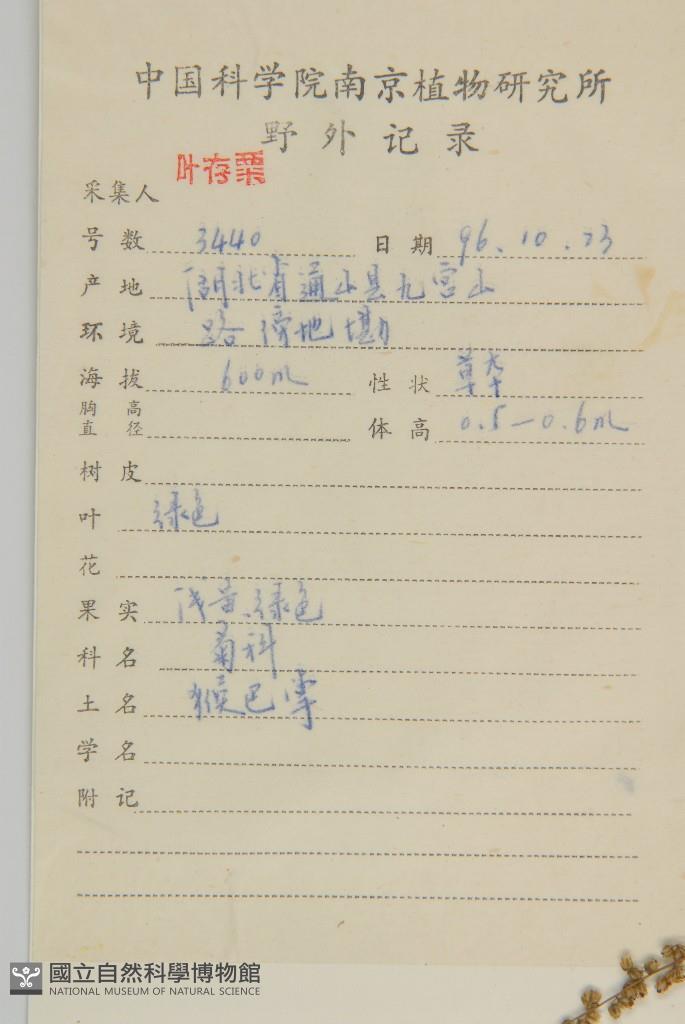 中国科学院南京植物研究所
野外记录
叶存粟
采集人
号数 3440 日期 96.10.23
产地 湖北省通山县九宫山
环境 路旁地墈
海拔 600m 性状 草本
胸高直径 体高 0.5—0.6m
树皮
叶 绿色
花
果实 浅黄绿色
科名 菊科
土名
学名
附记
國立自然科學博物館
NATIONAL MUSEUM OF NATURAL SCIENCE